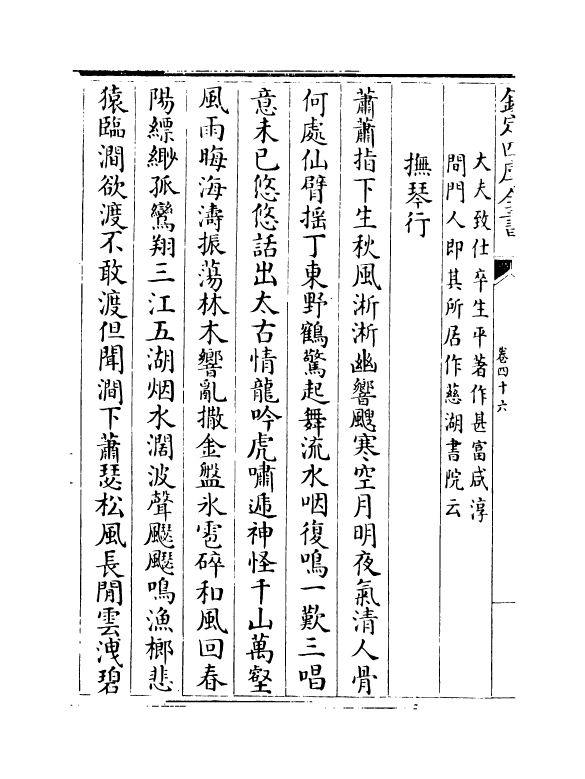 欽定四庫全書
卷四十六
大夫致仕卒生平著作甚富咸淳
間門人即其所居作慈湖書院云
撫琴行
蕭蕭指下生秋風淅淅幽響颸寒空月明夜氣清人骨
何處仙臂揺丁東野鶴驚起舞流水咽復鳴一歎三唱
意未已悠悠話出太古情龍吟虎嘯遁神怪千山萬壑
風雨晦海濤振蕩林木響亂撒金盤氷雹碎和風回春
陽縹緲孤鸞翔三江五湖烟水濶波聲颸颸鳴漁榔悲
猿臨澗欲渡不敢渡但聞澗下蕭瑟松風長閒雲洩碧